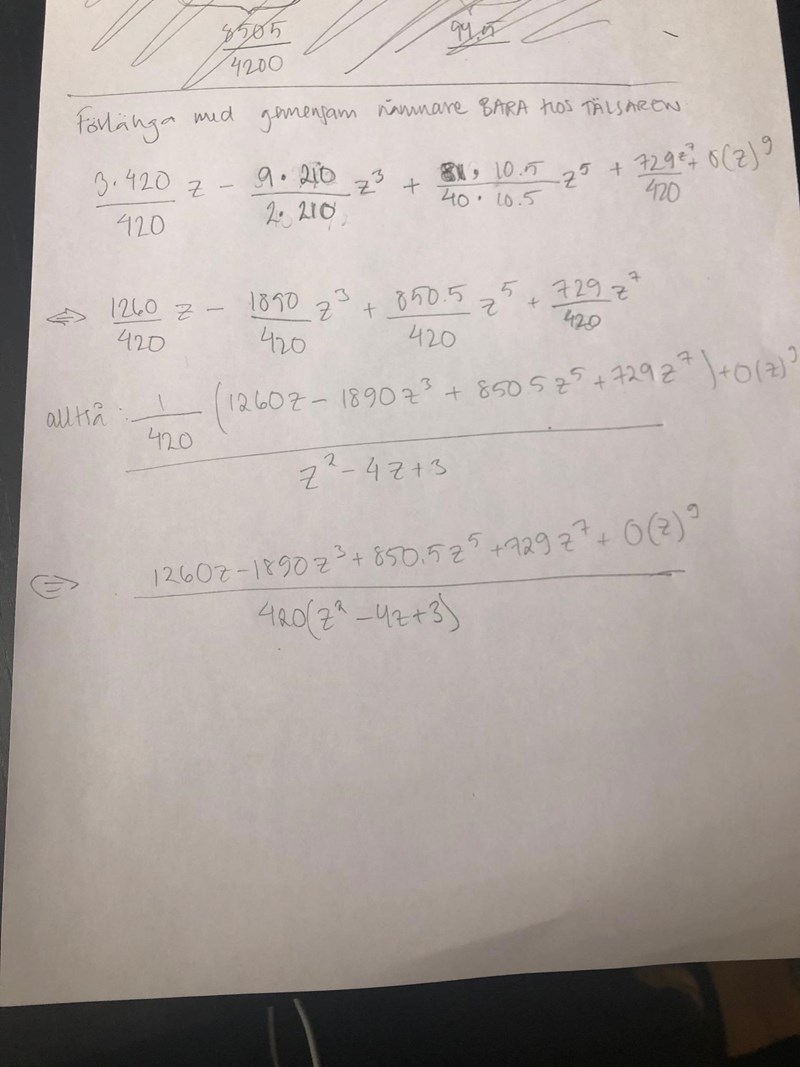 8505/4200 94.5
Förlänga med gemensam nämnare BARA HOS TÄLJAREN
3·420/420 z − 9·210/2·210 z³ + 81·10.5/40·10.5 z⁵ + 729z⁷/420 + O(z)⁹
⇔ 1260/420 z − 1890/420 z³ + 850.5/420 z⁵ + 729/420 z⁷
alltså: 1/420 (1260z − 1890z³ + 850.5z⁵ + 729z⁷) + O(z)⁹
z² − 4z + 3
⇔ 1260z − 1890z³ + 850.5z⁵ + 729z⁷ + O(z)⁹
420(z² − 4z + 3)